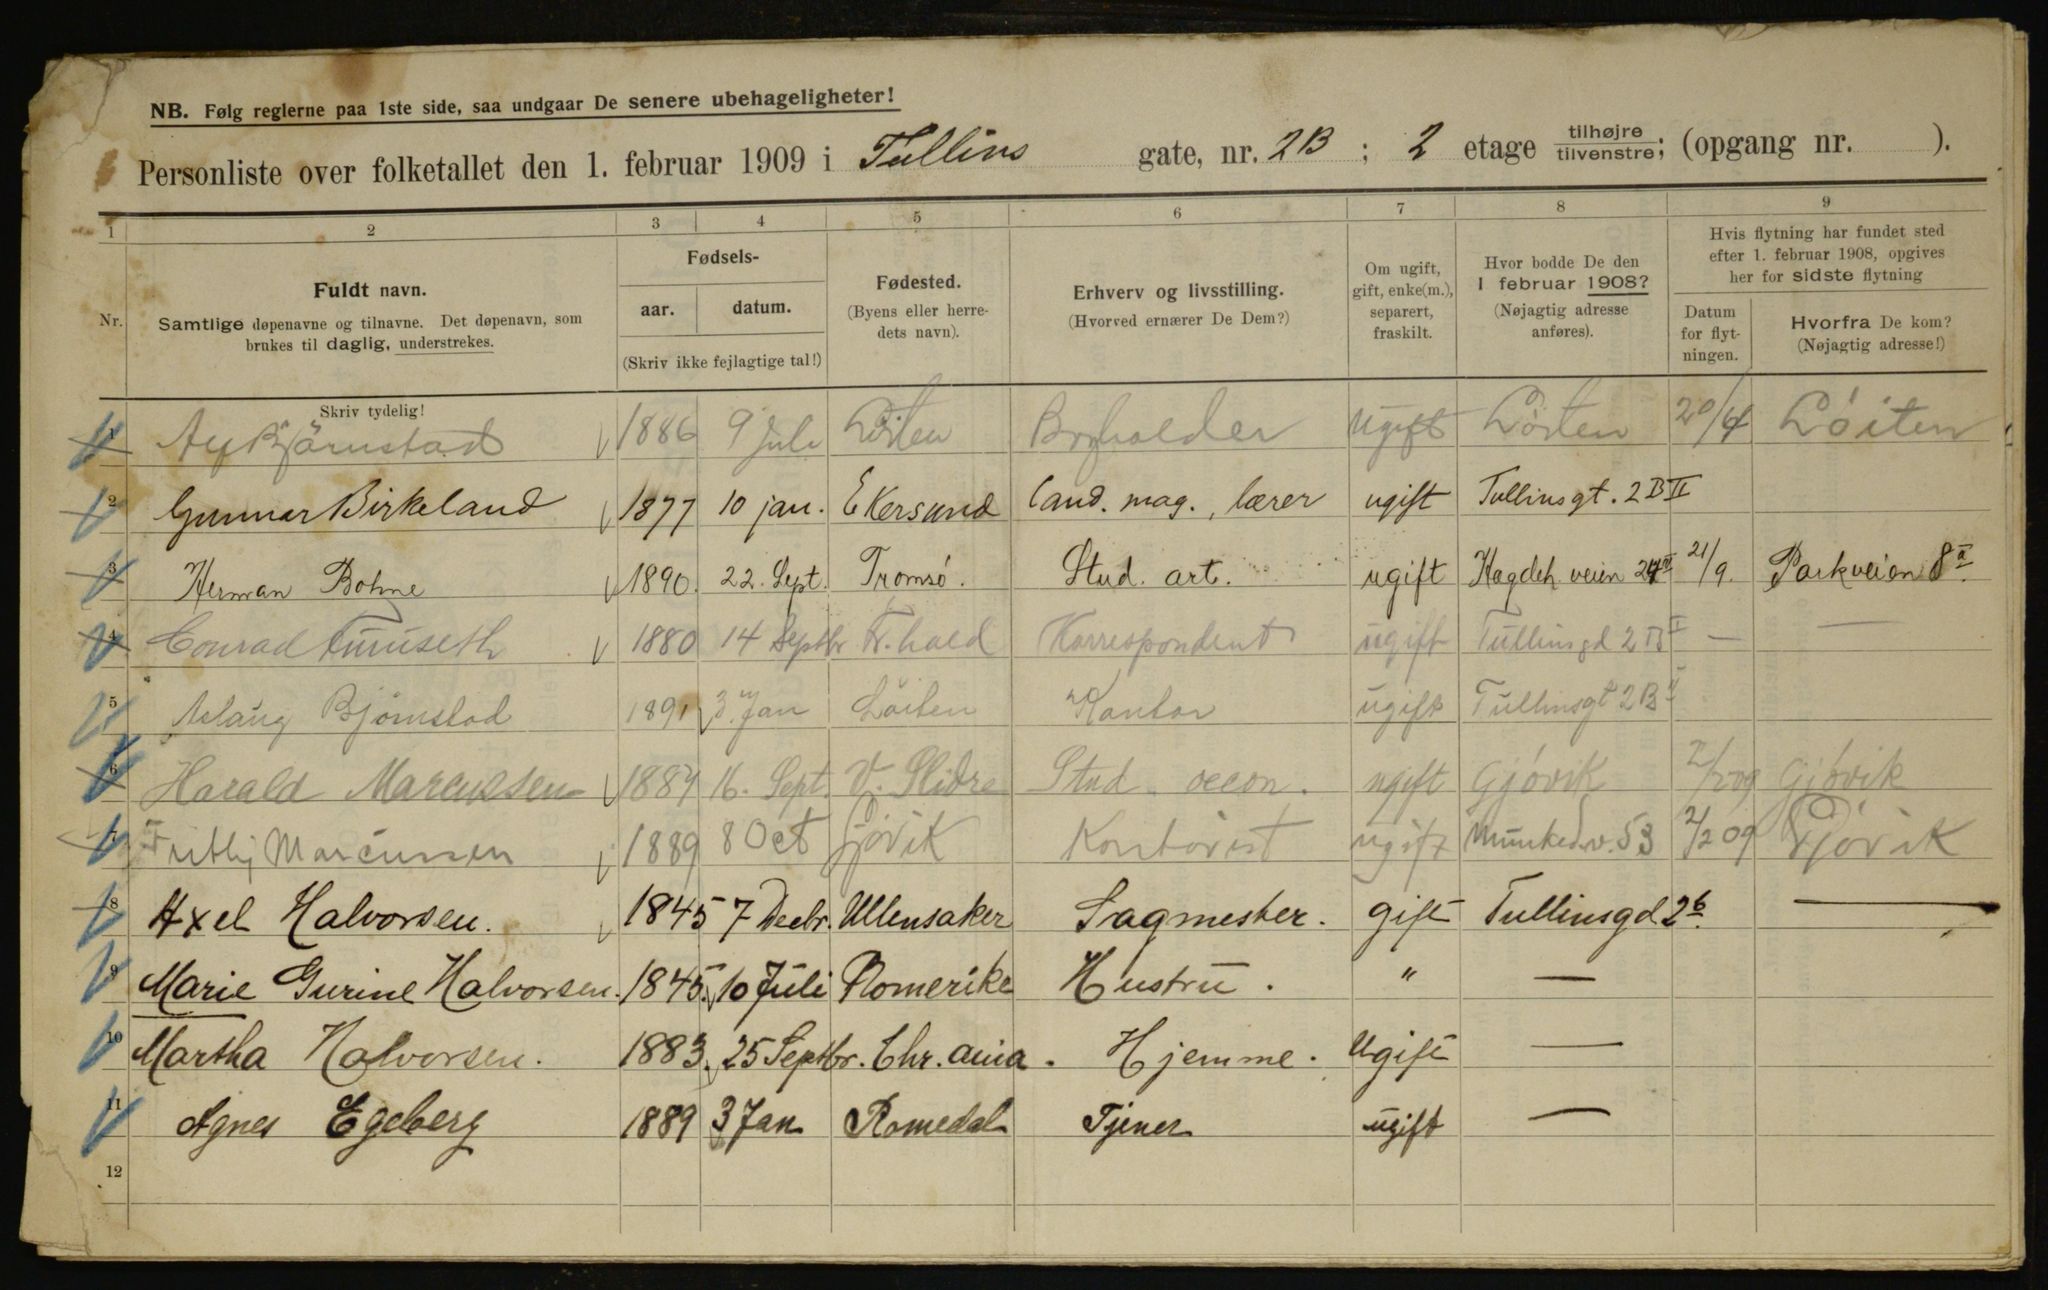 NB. Følg reglerne paa 1ste side, saa undgaar De senere ubehageligheter!
Personliste over folketallet den 1. februar 1909 i Tullins gate, nr. 2B ; 2 etage tilhøjre tilvenstre; (opgang nr. ).
1 2 3 4 5 6 7 8 9
Nr.
Fuldt navn.
Samtlige døpenavne og tilnavne. Det døpenavn, som
brukes til daglig, understrekes.
Skriv tydelig!
Fødsels-
aar. datum.
(Skriv ikke fejlagtige tal!)
Fødested.
(Byens eller herre-
dets navn).
Erhverv og livsstilling.
(Hvorved ernærer De Dem?)
Om ugift,
gift, enke(m.),
separert,
fraskilt.
Hvor bodde De den
1 februar 1908?
(Nøjagtig adresse
anføres).
Hvis flytning har fundet sted
efter 1. februar 1908, opgives
her for sidste flytning
Datum
for flyt-
ningen.
Hvorfra De kom?
(Nøjagtig adresse!)
1 Bjørnstad 1886 9 Juli Löiten Bogholder Ugift Löiten 20/4 Löiten
2 Gunnar Birkeland 1877 10 jan. Ekersund Cand. mag., lærer ugift Tullinsgt. 2 B II
3 Herman Bohne 1890. 22. Sept. Tromsø. Stud. art. ugift Hagdeh. veien 21/9. Parkveien 8a
4 Conrad Tuuseth 1880 14 Septbr Fr.hald Korrespondent ugift Tullinsgd 2 B — —
5 Aslaug Bjørnstad 1891 3. Jan Löiten Kontor ugift Tullinsgt 2B
6 Harald Marcussen 1887 16. Sept. V. Slidre Stud. oecon. ugift Gjøvik 2/2 09 Gjøvik
7 Marcussen 1889 8 Oct Gjøvik Kontorist ugift Munkedv. 53 2/2 09 Gjøvik
8 Axel Halvorsen. 1845 7 Decbr. Ullensaker Sagmester. gift Tullinsgd 2b. —
9 Marie Gurine Halvorsen. 1845. 10 Juli Romerike Hustru. " —
10 Martha Halvorsen. 1883. 25 Septbr. Chr.ania. Hjemme. Ugift —
11 Agnes Egeberg 1889 3 Jan Romedal Tjener ugift —
12